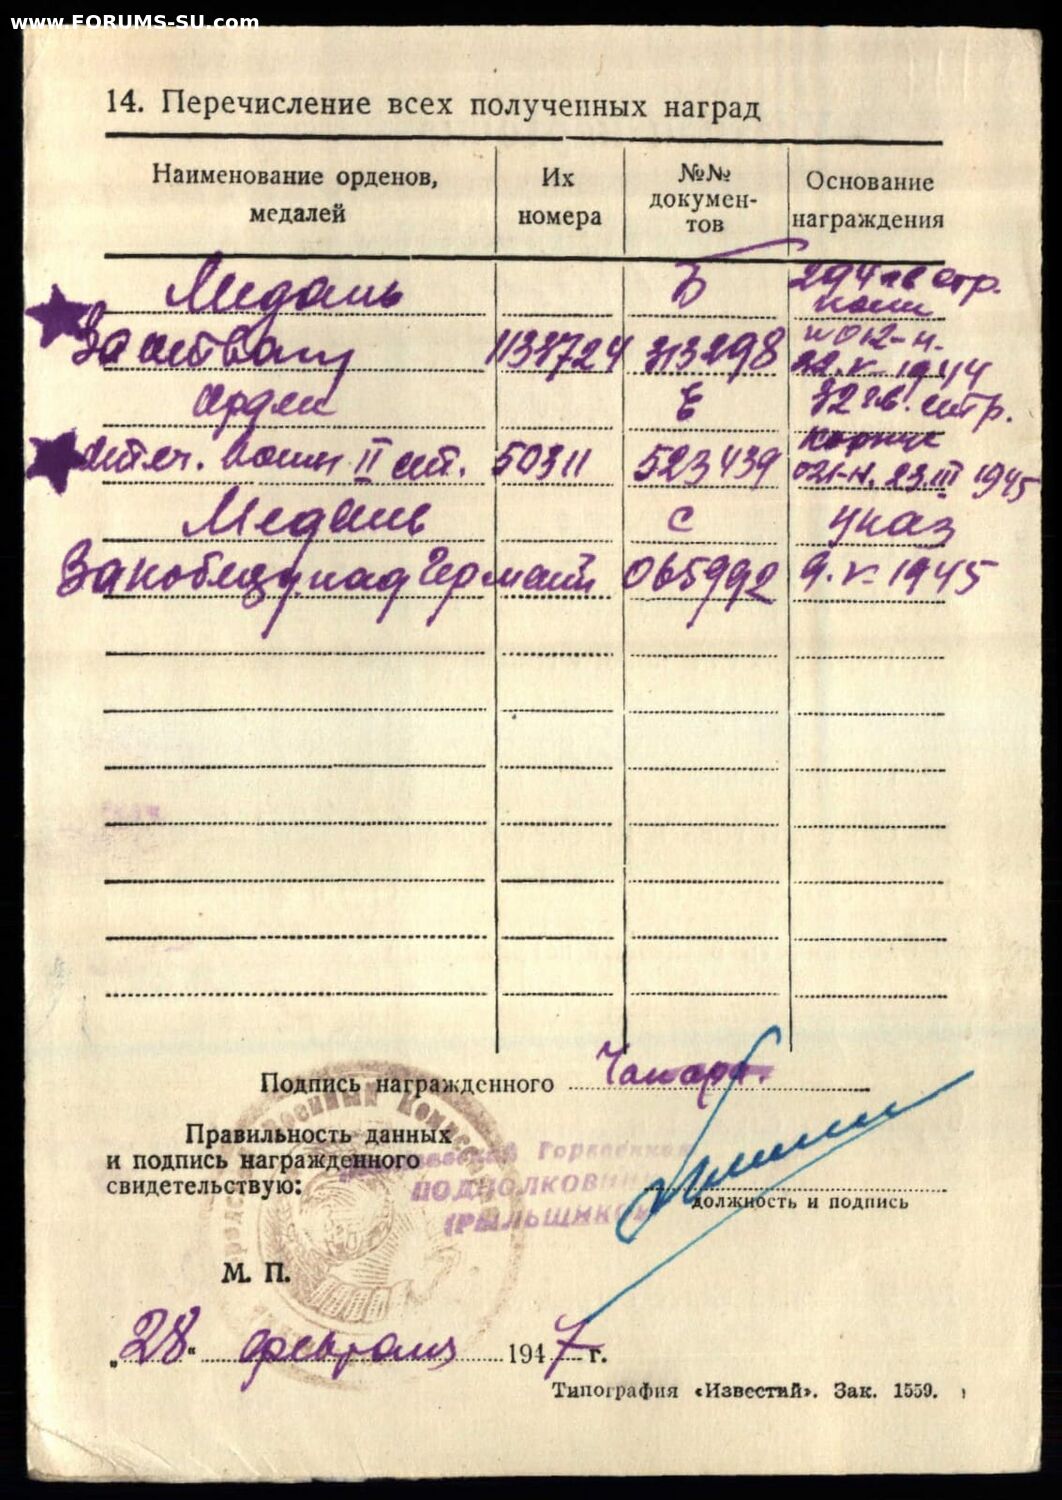 www.FORUMS-SU.com
14. Перечисление всех полученных наград
Наименование орденов, медалей
Их номера
№№ докумен-тов
Основание награждения
Медаль Б 294 гв стр.
За отвагу 1133724 313298 22.V-1944
Орден Е 32 гв. стр.
Отеч. войны II ст. 50311 523439 021-н. 23.III 1945
Медаль С Указ
За победу над Германией 065992 9.V-1945
Подпись награжденного
Правильность данных
и подпись награжденного
свидетельствую:
Горвоенком
ПОДПОЛКОВНИК
(РЫЛЬЩИКОВ
должность и подпись
М. П.
„28" февраля 1947 г.
Типография «Известий». Зак. 1559.